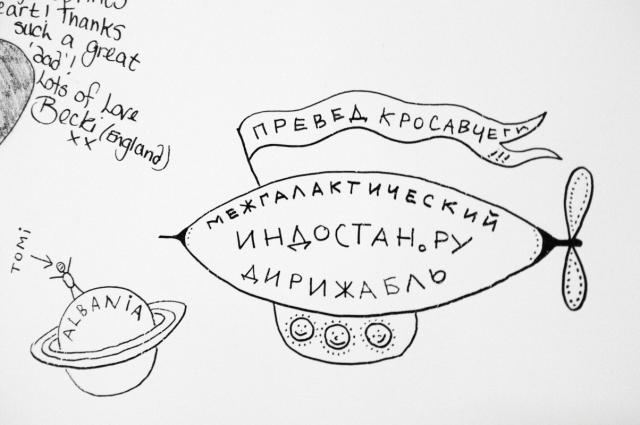 eart! Thanks
such a great
'dad'!
Lots of Love
Becki (England)
xx
ПРЕВЕД КРОСАВЧЕГИ
МЕЖГАЛАКТИЧЕСКИЙ
ИНДОСТАН.РУ
ДИРИЖАБЛЬ
TOMi
ALBANiA